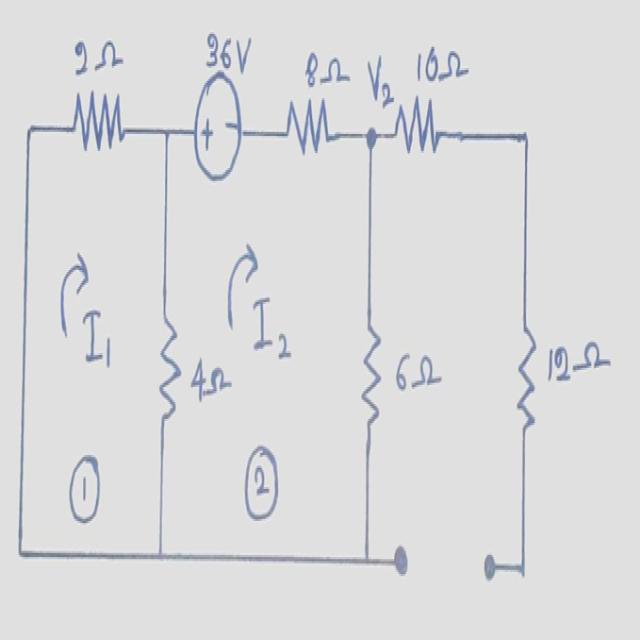 2Ω 36V 8Ω V₂ 10Ω
+ −
I₁ I₂
4Ω 6Ω 12Ω
① ②